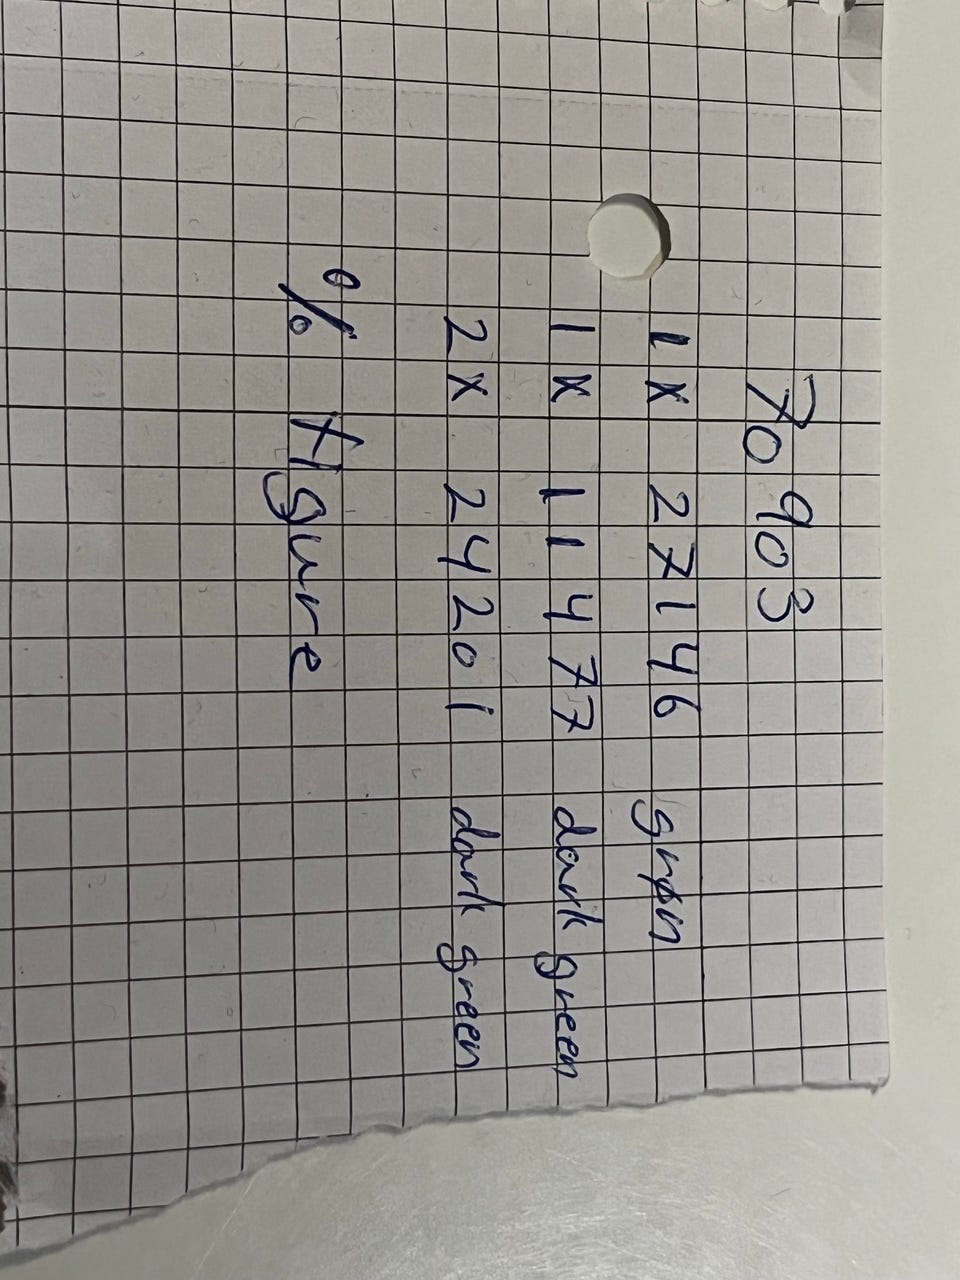 70903
1 x 27146 grøn
1 x 11477 dark green
2 x 24201 dark green
% figure